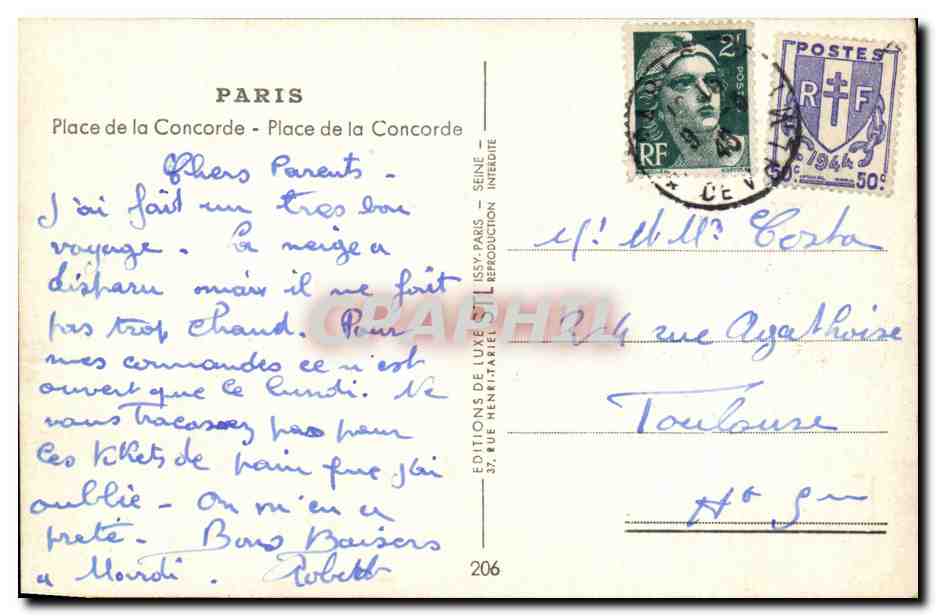 PARIS
Place de la Concorde - Place de la Concorde
Chers Parents -
J'ai fait un tres bon
voyage. La neige a
disparu mais il ne fait
pas trop chaud. Pour
mes commandes ce n'est
ouvert que le lundi. Ne
vous Tracassez pas pour
les tkets de pain que j'ai
oublié - On m'en a
preté. Bons Baisers
a Mardi. Robert
EDITIONS DE LUXE STIL ISSY-PARIS - SEINE -
37, RUE HENRI-TARIEL REPRODUCTION INTERDITE
206
2F
POSTES
RF
POSTES
R F
1944
50c 50c
DE V
Mr et Mme Costa
24 rue Agathoise
Toulouse
Hte Gne
CPAPHIL